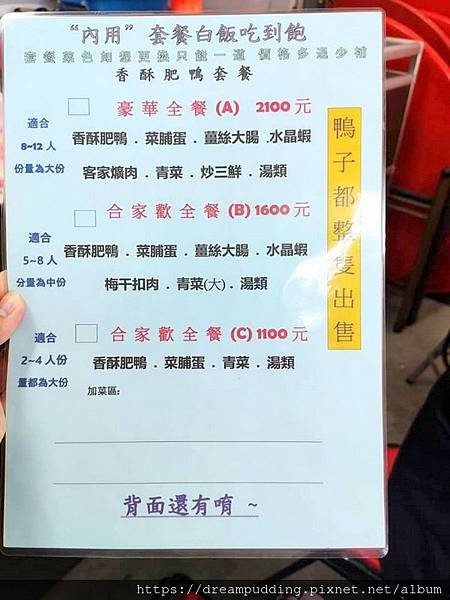 “內用” 套餐白飯吃到飽
套餐菜色如想更換只能一道 價格多退少補
香酥肥鴨套餐
豪華全餐 (A) 2100元
適合
8~12 人
份量為大份
香酥肥鴨 . 菜脯蛋 . 薑絲大腸 .水晶蝦
客家爌肉 . 青菜 . 炒三鮮 . 湯類
合家歡全餐 (B) 1600元
適合
5~8 人
分量為中份
香酥肥鴨 . 菜脯蛋 . 薑絲大腸 . 水晶蝦
梅干扣肉 . 青菜(大) . 湯類
合家歡全餐 (C) 1100元
適合
2~4 人份
量都為大份
香酥肥鴨 . 菜脯蛋 . 青菜 . 湯類
加菜區:
鴨子都整隻出售
背面還有唷 ~
https://dreampudding.pixnet.net/album